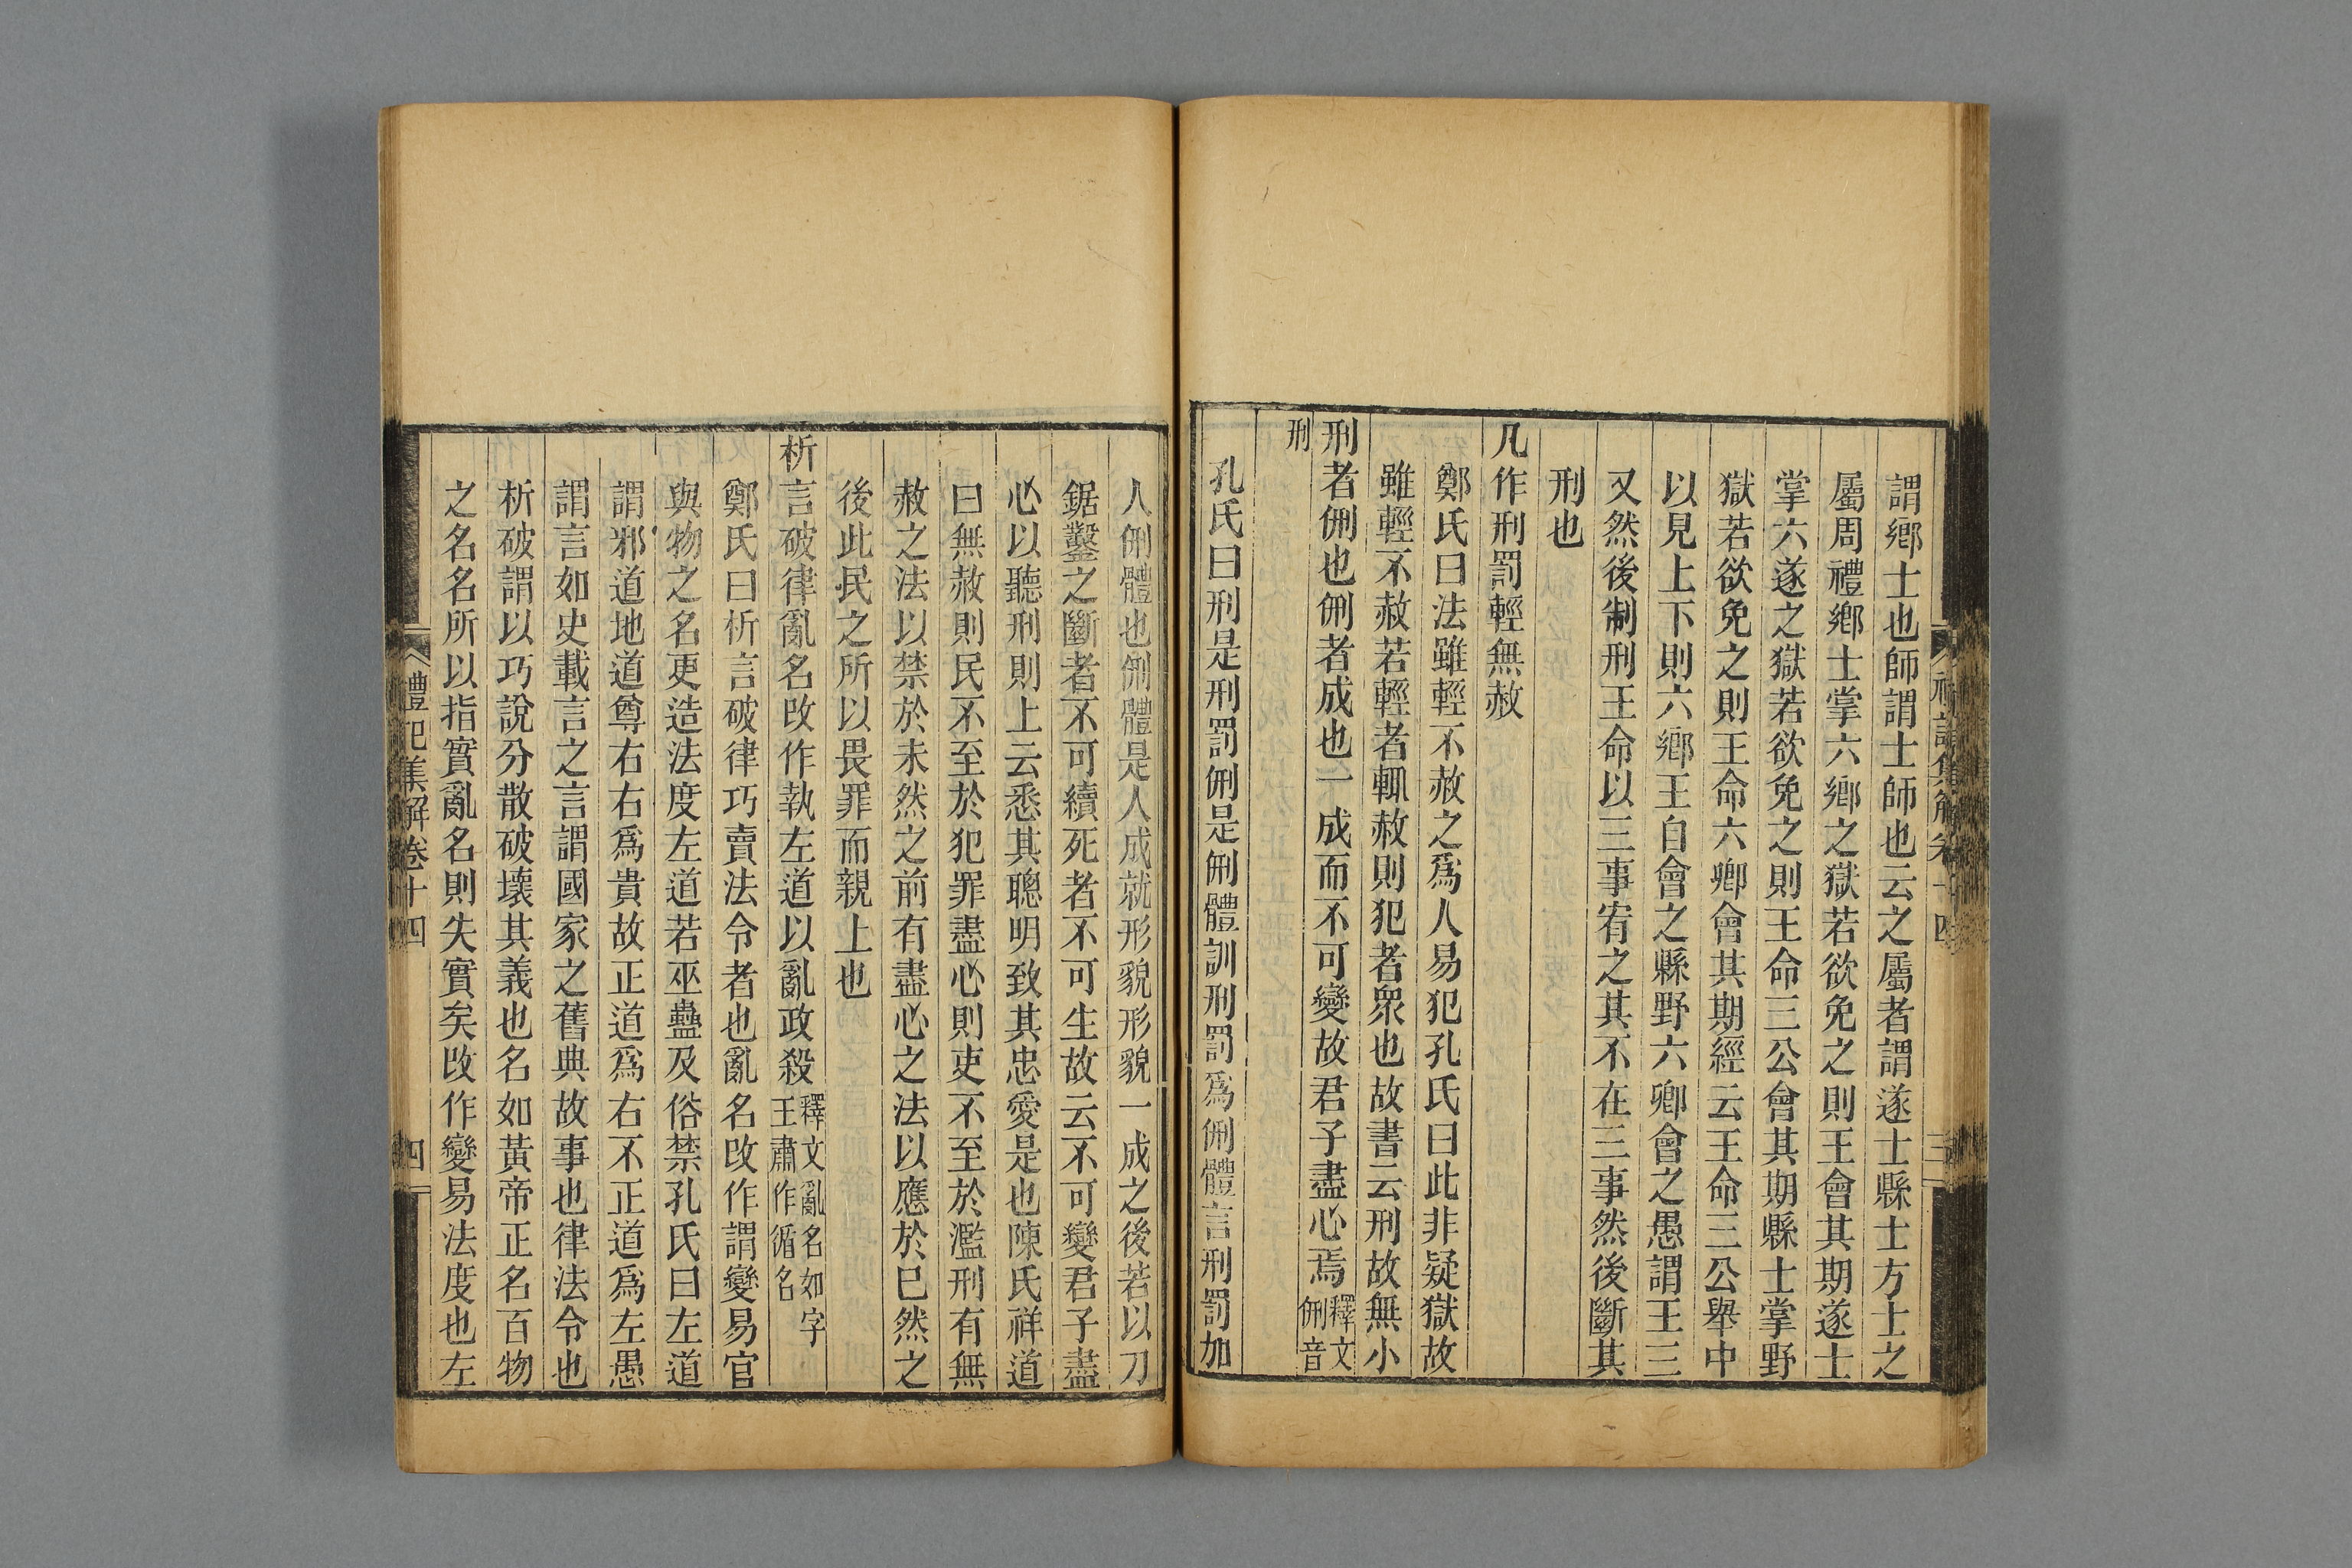 謂鄉士也師謂士師也云之屬者謂遂士縣士方士之
屬周禮鄉士掌六鄉之獄若欲免之則王會其期遂士
掌六遂之獄若欲免之則王命三公會其期縣士掌野
獄若欲免之則王命六卿會其期經云王命三公舉中
以見上下則六鄉王自會之縣野六卿會之愚謂王三
又然後制刑王命以三事宥之其不在三事然後斷其
刑也
凡作刑罰輕無赦
鄭氏曰法雖輕不赦之爲人易犯孔氏曰此非疑獄故
雖輕不赦若輕者輒赦則犯者衆也故書云刑故無小
刑者侀也侀者成也一成而不可變故君子盡心焉釋文
侀音
刑
孔氏曰刑是刑罰侀是侀體訓刑罰爲侀體言刑罰加
人侀體也侀體是人成就形貌形貌一成之後若以刀
鋸鑿之斷者不可續死者不可生故云不可變君子盡
心以聽刑則上云悉其聰明致其忠愛是也陳氏祥道
曰無赦則民不至於犯罪盡心則吏不至於濫刑有無
赦之法以禁於未然之前有盡心之法以應於已然之
後此民之所以畏罪而親上也
析言破律亂名改作執左道以亂政殺釋文亂名如字
王肅作循名
鄭氏曰析言破律巧賣法令者也亂名改作謂變易官
與物之名更造法度左道若巫蠱及俗禁孔氏曰左道
謂邪道地道尊右右爲貴故正道爲右不正道爲左愚
謂言如史載言之言謂國家之舊典故事也律法令也
析破謂以巧說分散破壞其義也名如黃帝正名百物
之名名所以指實亂名則失實矣改作變易法度也左
禮記集解卷十四
四